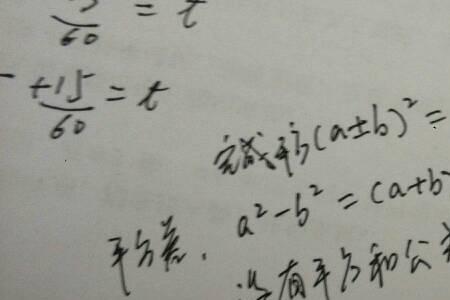 /60 = t
+15/60 = t
完全平方(a±b)² =
平方差. a² - b² = (a+b
没有平方和公